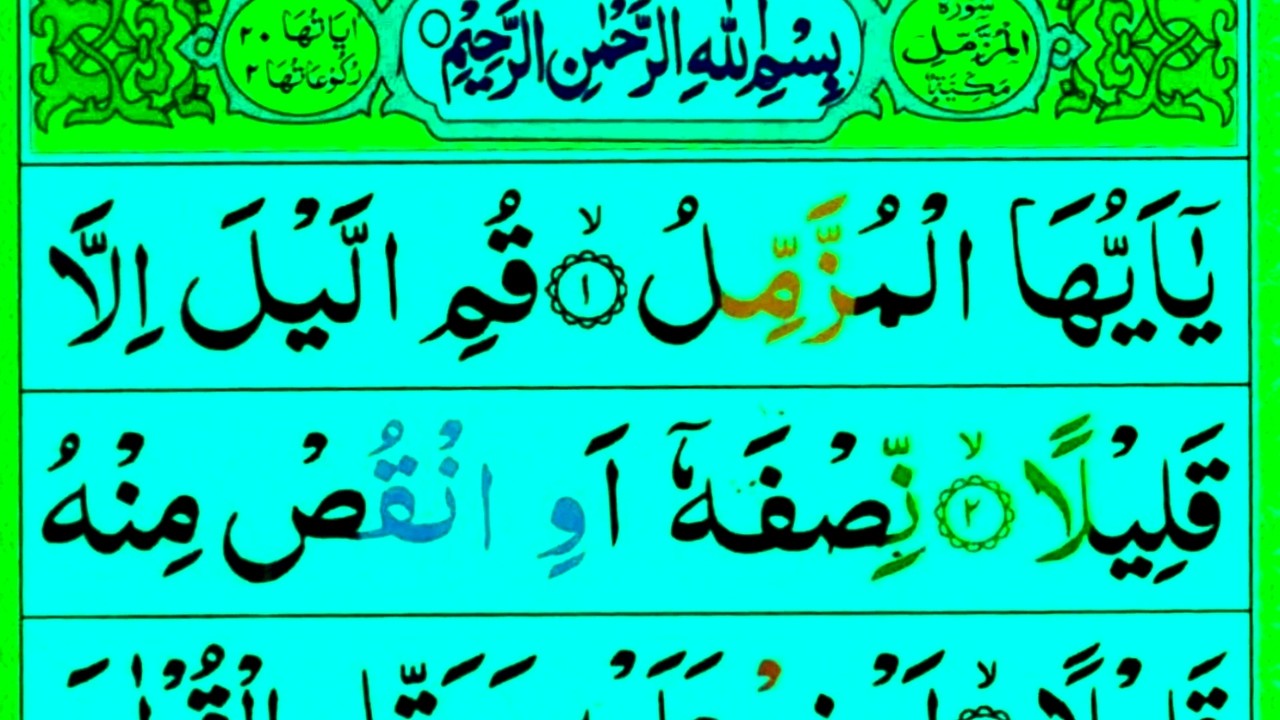 سورة المزمل مكية
بِسْمِ اللهِ الرَّحْمٰنِ الرَّحِيْمِ
اٰيَاتُهَا ٢٠ رُكُوْعَاتُهَا ٢
يٰۤاَيُّهَا الْمُزَّمِّلُ ۙ﴿١﴾ قُمِ الَّيْلَ اِلَّا
قَلِيْلًا ۙ﴿٢﴾ نِّصْفَهٗۤ اَوِ انْقُصْ مِنْهُ
قَلِيْلًا